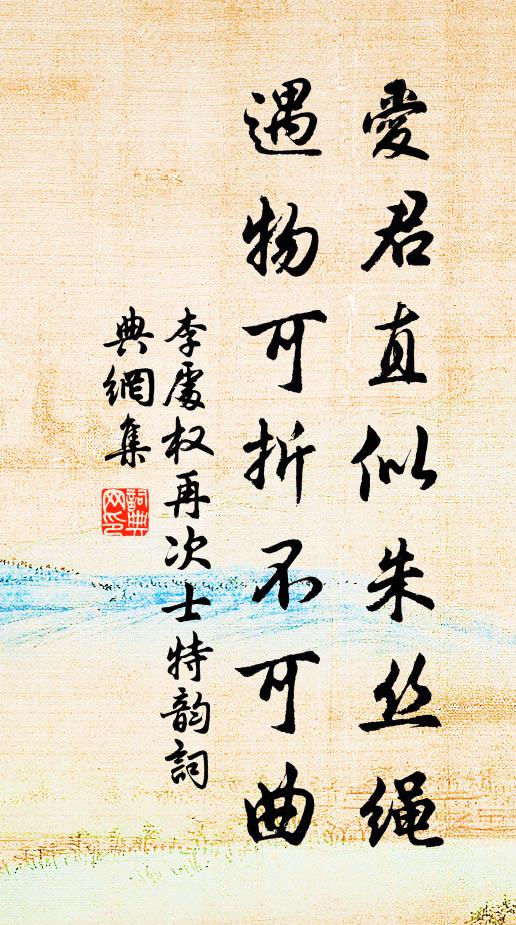 愛君直似朱丝绳
遇物可折不可曲
李處权再次士特韵詞
典網集
詞典
网印